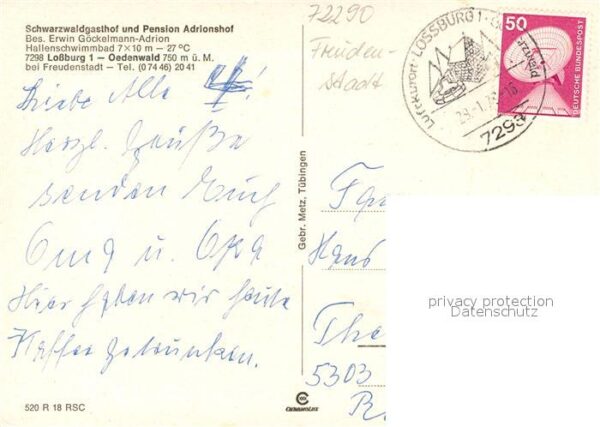 Schwarzwaldgasthof und Pension Adrionshof
Bes. Erwin Göckelmann-Adrion
Hallenschwimmbad 7×10 m – 27°C
7298 Loßburg 1 – Oedenwald 750 m ü. M.
bei Freudenstadt – Tel. (07446) 2041
72290
Freuden-
stadt
Luftkurort · LOSSBURG 1 ·
7298
50
DEUTSCHE BUNDESPOST
Liebe Alle !
Herzl. Grüße
senden Euch
Oma u. Opa
Hier haben wir heute
Kaffee getrunken.
Gebr. Metz, Tübingen
Hans
The
5303
privacy protection
Datenschutz
520 R 18 RSC